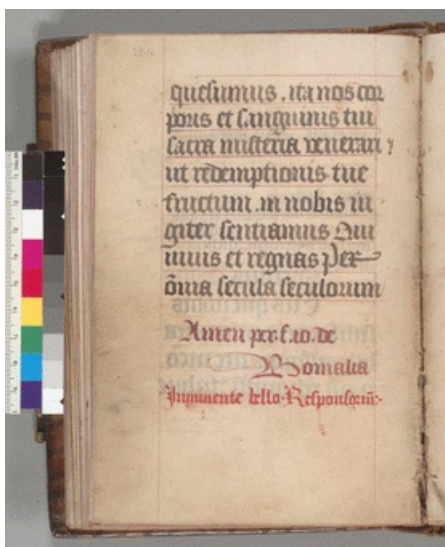 quesumus . ita nos cor
poris et sanguinis tui
sacra misteria venerari ;
ut redemptionis tue
fructum . in nobis iu
giter sentiamus Qui
viuis et regnas Per
o͞mia secula seculorum
Amen per . f . io . de
Bomalia
Imminente bello . Responsoriu͞ .